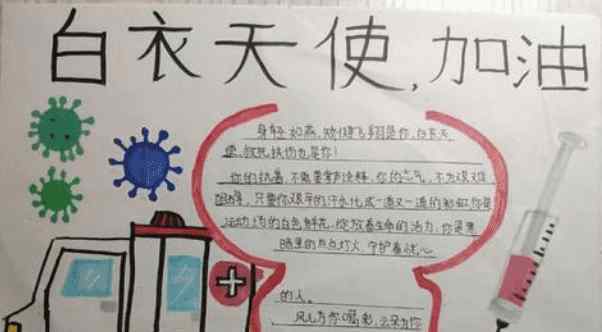 白衣天使,加油
身轻如燕,矫健飞翔是你,白衣天
使,救死扶伤也是你!
你的执着,不需要声诠释,你的志气,不为艰难
困苦,只要你艰辛的汗水化成一道又一道的彩虹你是
运动场的白色鲜花,绽放着生命的活力,你是黑
暗里的点点灯火,守护着伏心
的人。
风儿为你喝彩,云朵为你